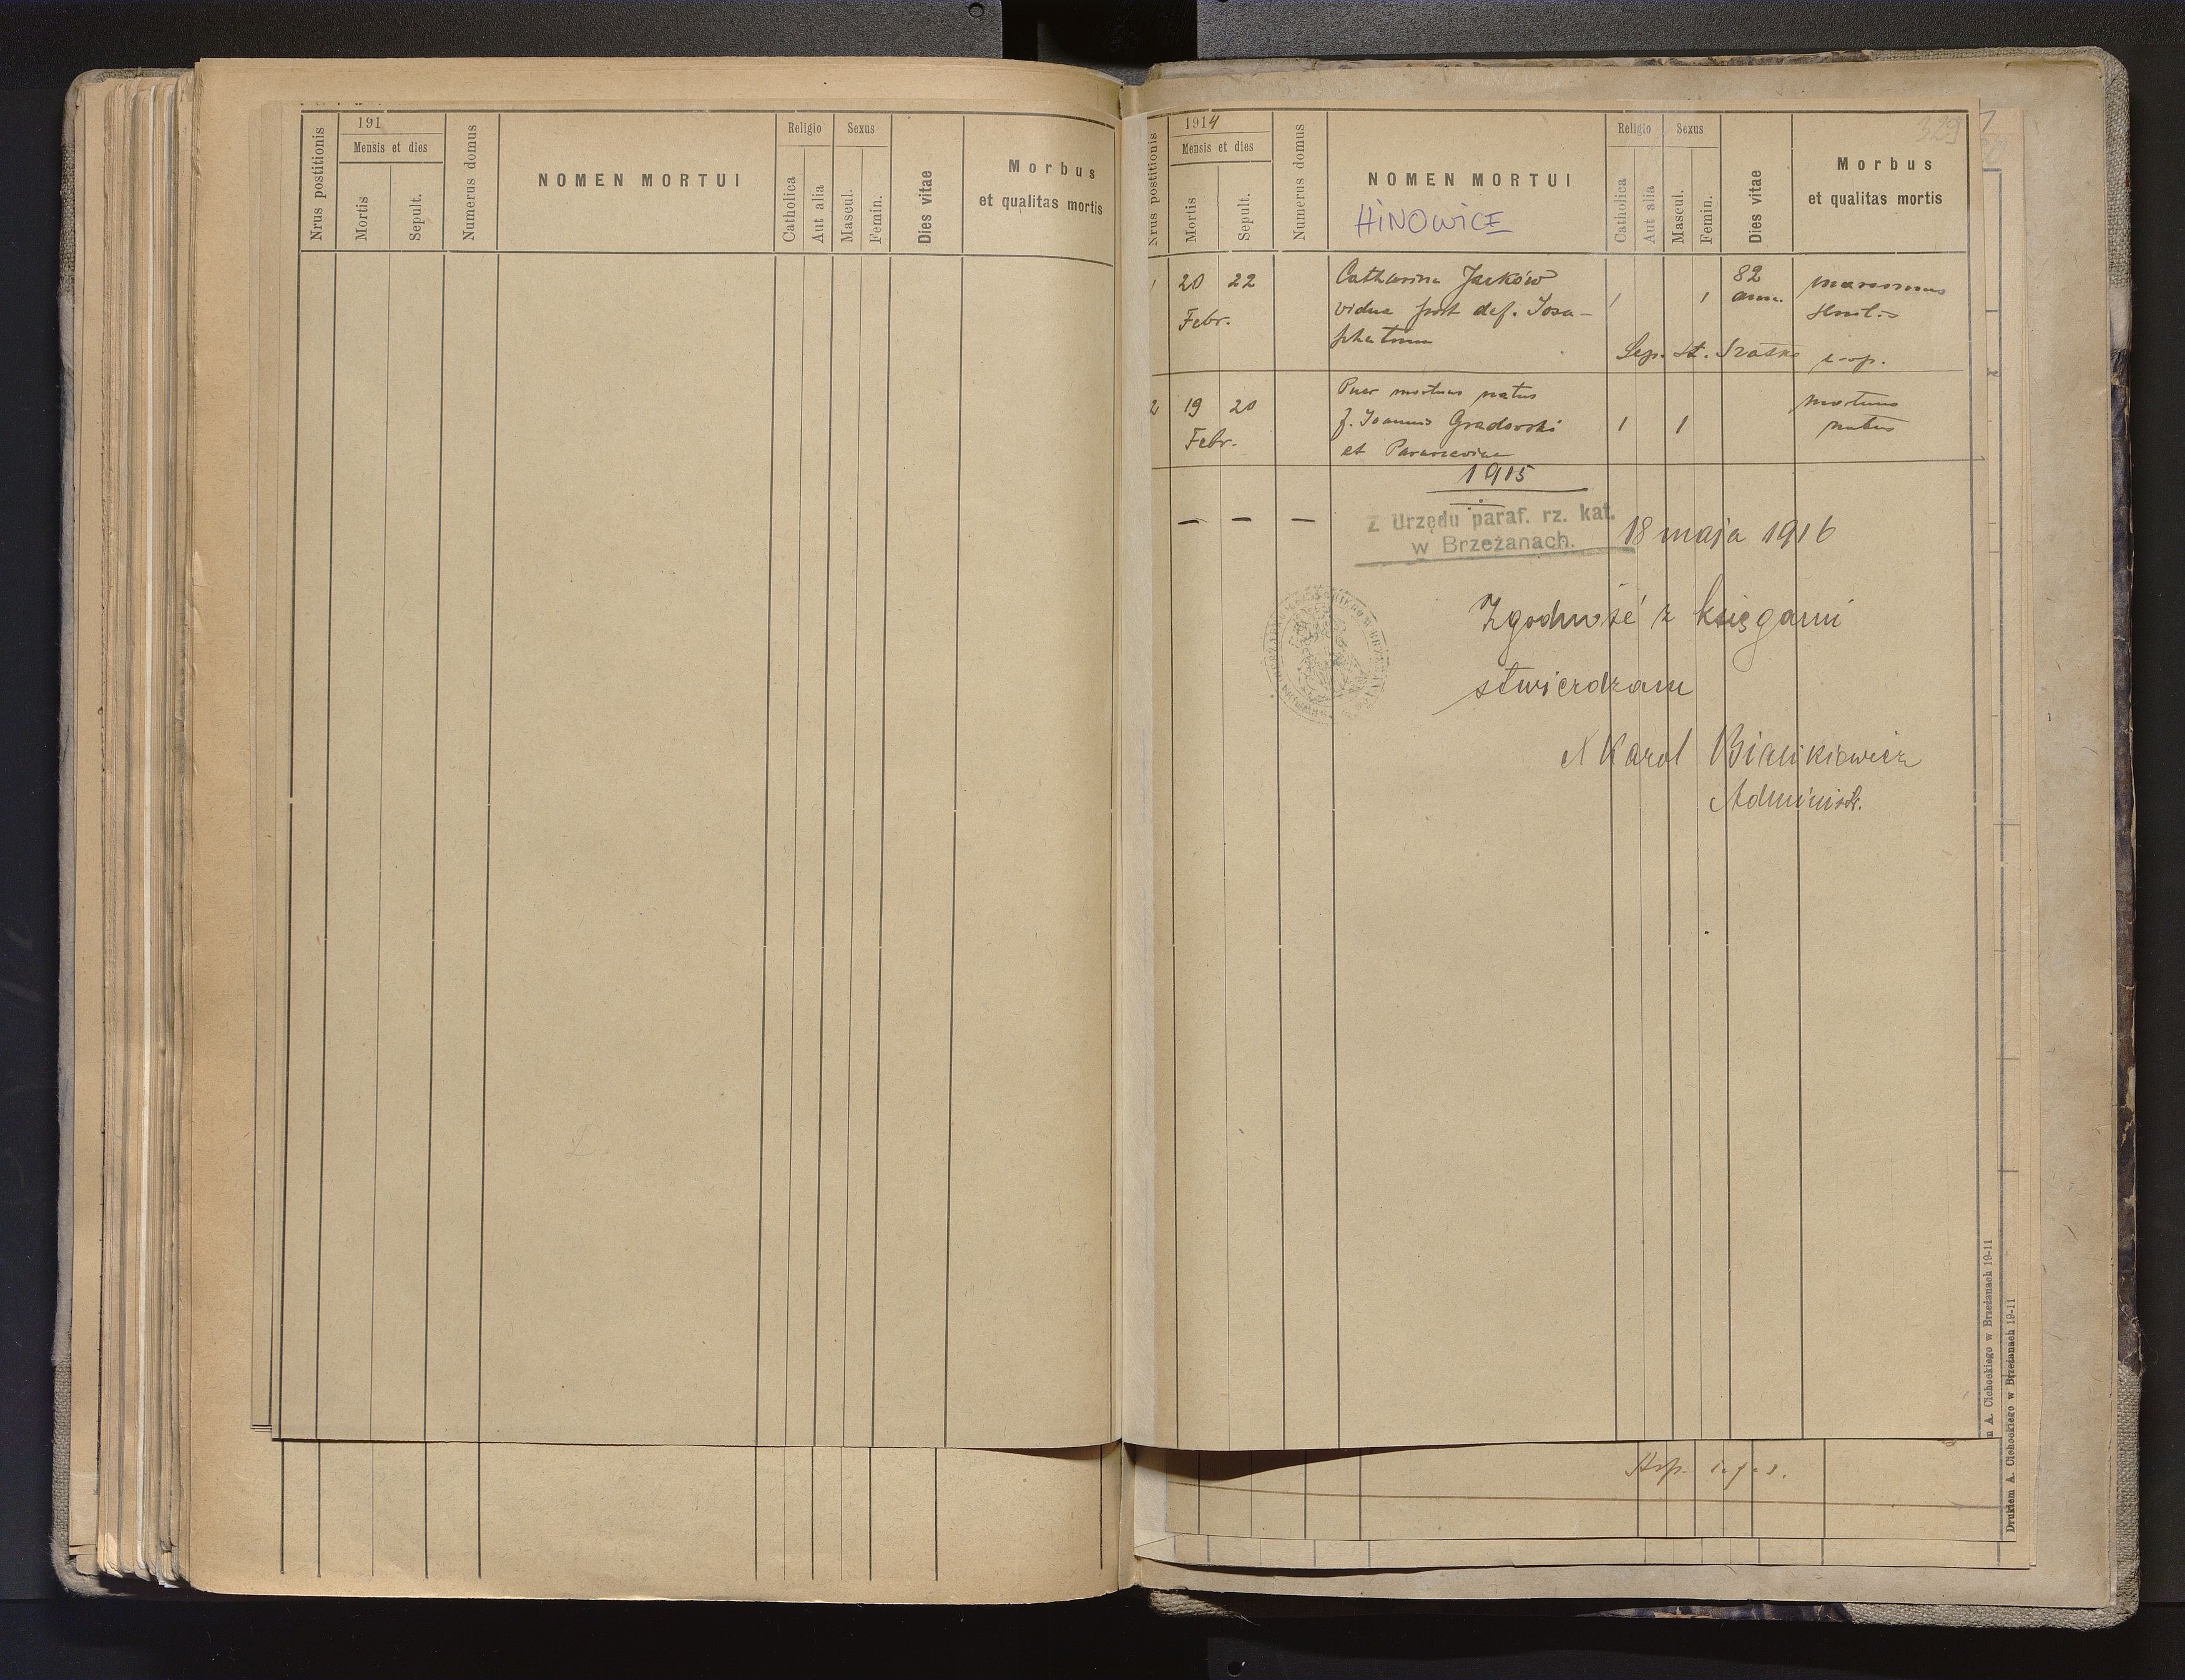 191
Mensis et dies
Nrus postitionis
Mortis
Sepult.
Numerus domus
NOMEN MORTUI
Religio
Catholica
Aut alia
Sexus
Mascul.
Femin.
Dies vitae
Morbus
et qualitas mortis
329
1914
Mensis et dies
Nrus postitionis
Mortis
Sepult.
Numerus domus
NOMEN MORTUI
HiNOWiCE
Religio
Catholica
Aut alia
Sexus
Mascul.
Femin.
Dies vitae
Morbus
et qualitas mortis
1 20 22 Catharina Jacków 82
Febr. vidua post def. Josa- 1 1 ann. marasmus
phatum
Sep. St.
2 19 20 Puer mortuus natus mortuus
Febr. f. Joannis Gradowski 1 1 natus
et Parasceviae
1915
— — —
Z Urzędu paraf. rz. kat.
w Brzeżanach.
18 maja 1916
Zgodność z księgami
stwierdzam
X Karol Bieńkiewicz
Administr.
A. Cichockiego w Brzeżanach 19-11
Drukiem A. Cichockiego w Brzeżanach 19-11